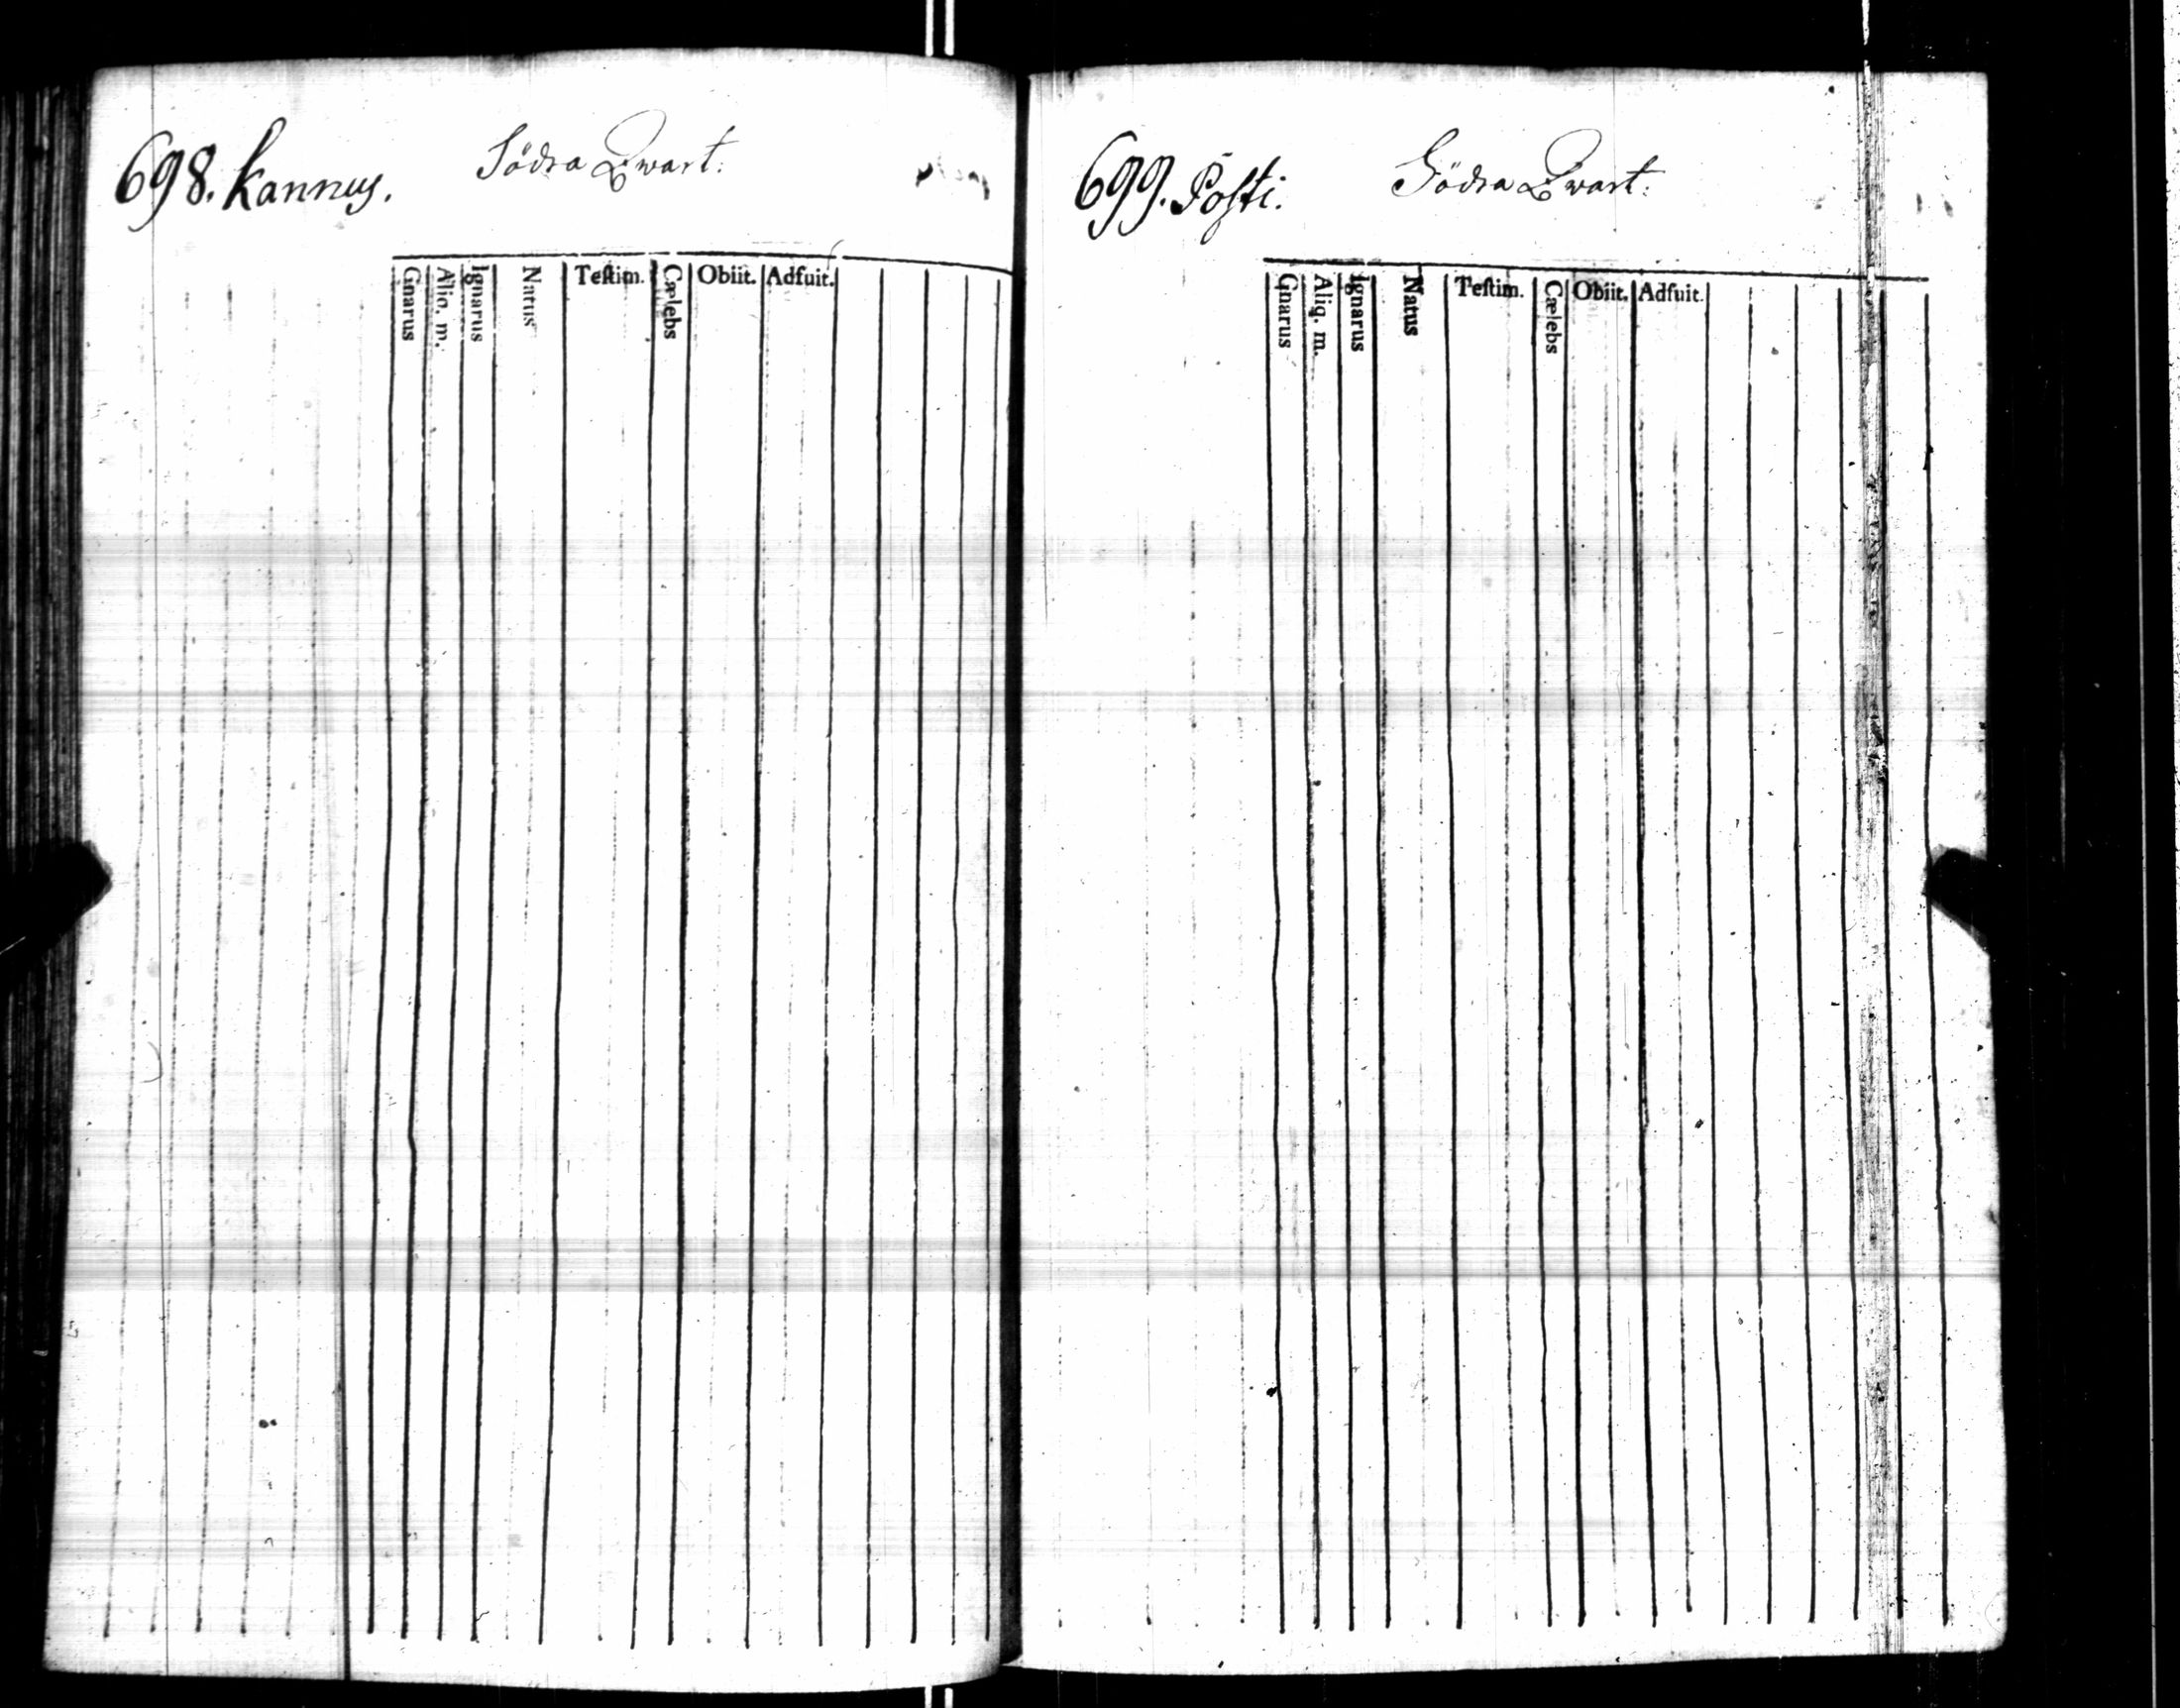 698. Kannus. Södra Qwart:
Gnarus Aliq. m. Ignarus Natus Teſtim. Cælebs Obiit. Adfuit.
699. Poſti. Södra Qwart:
Gnarus Aliq. m. Ignarus Natus Teſtim. Cælebs Obiit. Adfuit.